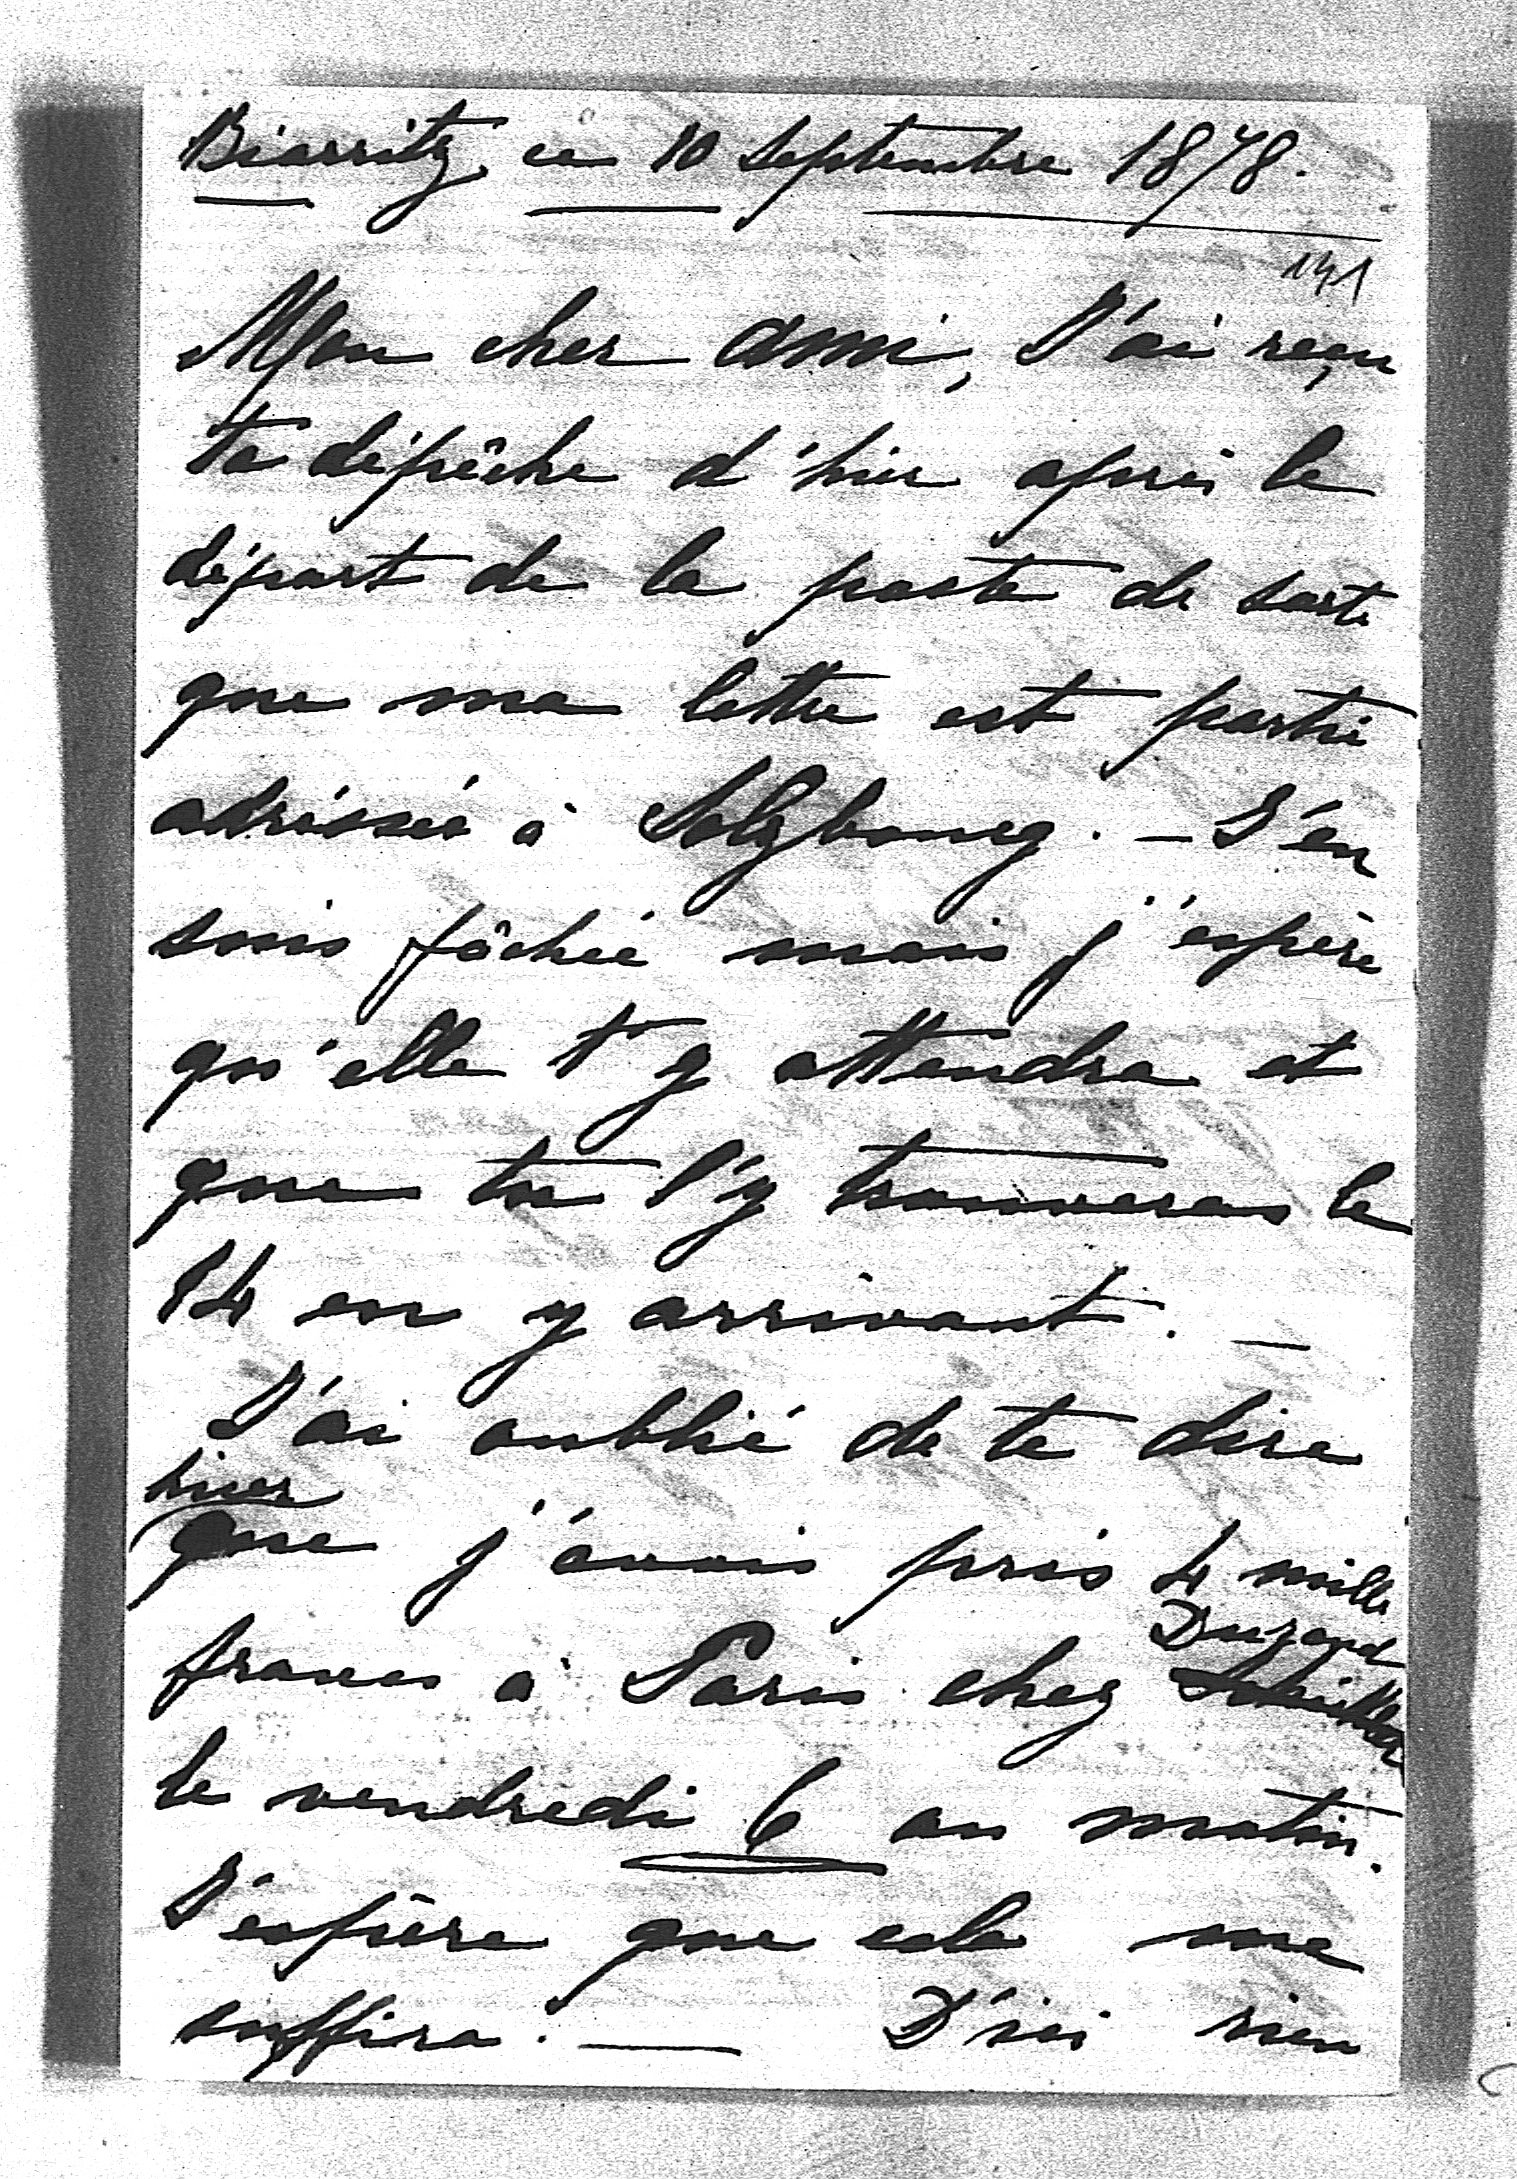 Biarritz, ce 10 Septembre 1878.
141
Mon cher ami, J'ai reçu
ta dépêche d'hier après le
départ de la poste de sorte
que ma lettre est partie
adressée à Salzbourg. — J'en
suis fâchée mais j'espère
qu'elle t'y attendra et
que tu l'y trouveras le
14 en y arrivant. —
J'ai oublié de te dire
hier
que j'avais pris 4 mille
Durand
francs à Paris chez
le vendredi 6 au matin.
J'espère que cela me
suffira. — D'ici rien